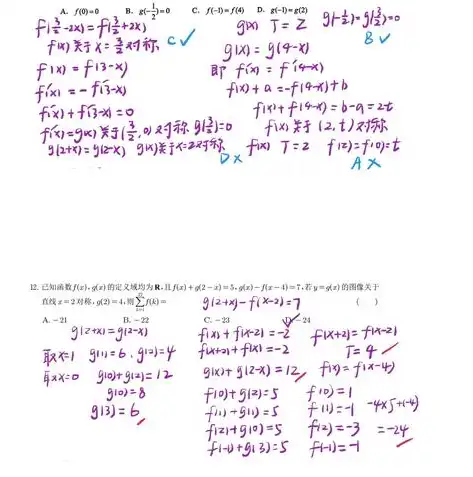 A. f(0)=0 B. g(-1/2)=0 C. f(-1)=f(4) D. g(-1)=g(2)
f(3/2-2x)=f(3/2+2x)
f(x)关于x=3/2对称 C✓
f(x)=f(3-x)
f'(x)=-f'(3-x)
f'(x)+f'(3-x)=0
f'(x)=g(x)关于(3/2,0)对称 g(3/2)=0
g(2+x)=g(2-x) g(x)关于x=2对称 D×
g(x) T=2 g(-1/2)=g(3/2)=0
B✓
g(x)=g(4-x)
即 f'(x)=f'(4-x)
f(x)+a=-f(4-x)+b
f(x)+f(4-x)=b-a=2t
f(x)关于(2,t)对称
f(x) T=2 f(2)=f(0)=t
A×
12. 已知函数f(x),g(x)的定义域均为R,且f(x)+g(2-x)=5,g(x)-f(x-4)=7,若y=g(x)的图像关于
直线x=2对称,g(2)=4,则∑f(k)= ( )
A. -21 B. -22 C. -23 D. -24
g(2+x)=g(2-x)
取x=1 g(1)=6, g(2)=4
取x=0 g(0)+g(2)=12
g(0)=8
g(3)=6
g(2+x)-f(x-2)=7
f(x)+f(x-2)=-2
f(x+2)+f(x)=-2
g(x)+g(2-x)=12
f(0)+g(2)=5
f(1)+g(1)=5
f(2)+g(0)=5
f(-1)+g(3)=5
f(x+2)=f(x-2)
T=4
f(x)=f(x-4)
f(0)=1
f(1)=-1 -4×5+(-4)
f(2)=-3 =-24
f(-1)=-1